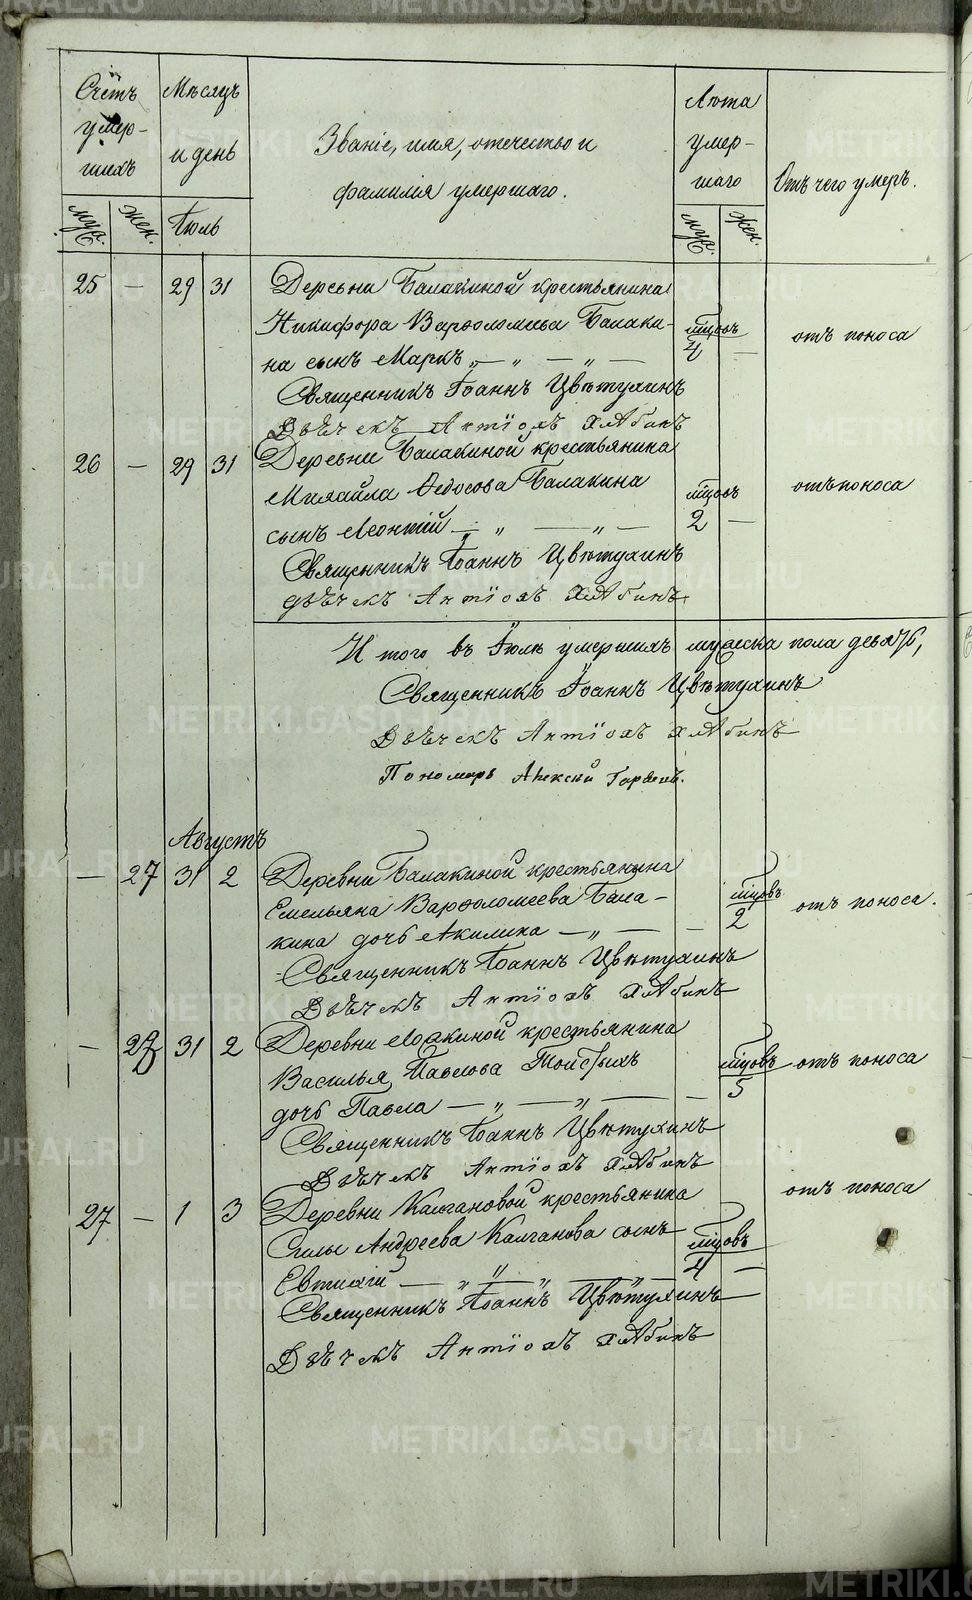 Счетъ умер-шихъ
муж.
жен.
Мѣсяцъ и день
Іюль
Званіе, имя, отечество и
фамилія умершаго.
Лѣта умер-шаго
муж.
жен.
Отъ чего умеръ.
25 — 29 31 Деревни Балакиной крестьянина
Никифора Варѳоломеева Балаки-
на сынъ Маркъ — „ — „ — мцовъ 4 — отъ поноса
Священникъ Іоаннъ Цвѣтухинъ
Дьячекъ Антіохъ Хлябинъ
26 — 29 31 Деревни Балакиной крестьянина
Михайла Ѳедосова Балакина мцовъ отъ поноса
сынъ Леонтій — „ — „ — 2 —
Священникъ Іоаннъ Цвѣтухинъ
дьячекъ Антіохъ Хлябинъ
Итого въ Іюлѣ умершихъ мужеска пола девять,
Священникъ Іоаннъ Цвѣтухинъ
Дьячекъ Антіохъ Хлябинъ
Пономарь Алексій
Августъ
— 27 31 2 Деревни Балакиной крестьянина
Емельяна Варѳоломеева Бала- мцовъ отъ поноса.
кина дочь Акилина — „ — — 2
Священникъ Іоаннъ Цвѣтухинъ
Дьячекъ Антіохъ Хлябинъ
— 28 31 2 Деревни крестьянина
Василья Павлова мцовъ отъ поноса
дочь Павла — „ — „ — — 5
Священникъ Іоаннъ Цвѣтухинъ
Дьячекъ Антіохъ Хлябинъ
27 — 1 3 Деревни Калгановой крестьянина отъ поноса
Силы Андреева Калганова сынъ мцовъ
— „ — „ — 4 —
Священникъ Іоаннъ Цвѣтухинъ
Дьячекъ Антіохъ Хлябинъ
METRIKI.GASO-URAL.RU